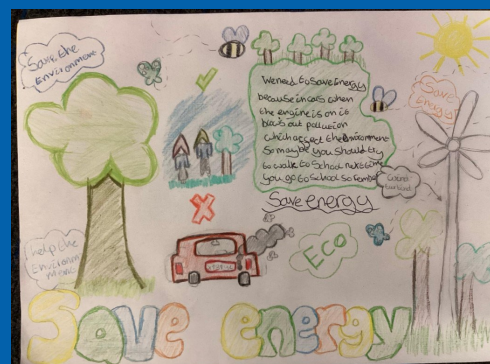 Save the
Environment
We need to save Energy
because in cars when
the engine is on it
blows out pollution
which affect the Environment
So maybe you should try
to walk to School next time
you go to School so rember
Save energy
Save
Energy
Wind
turbine
Eco
help the
Environment
Save energy